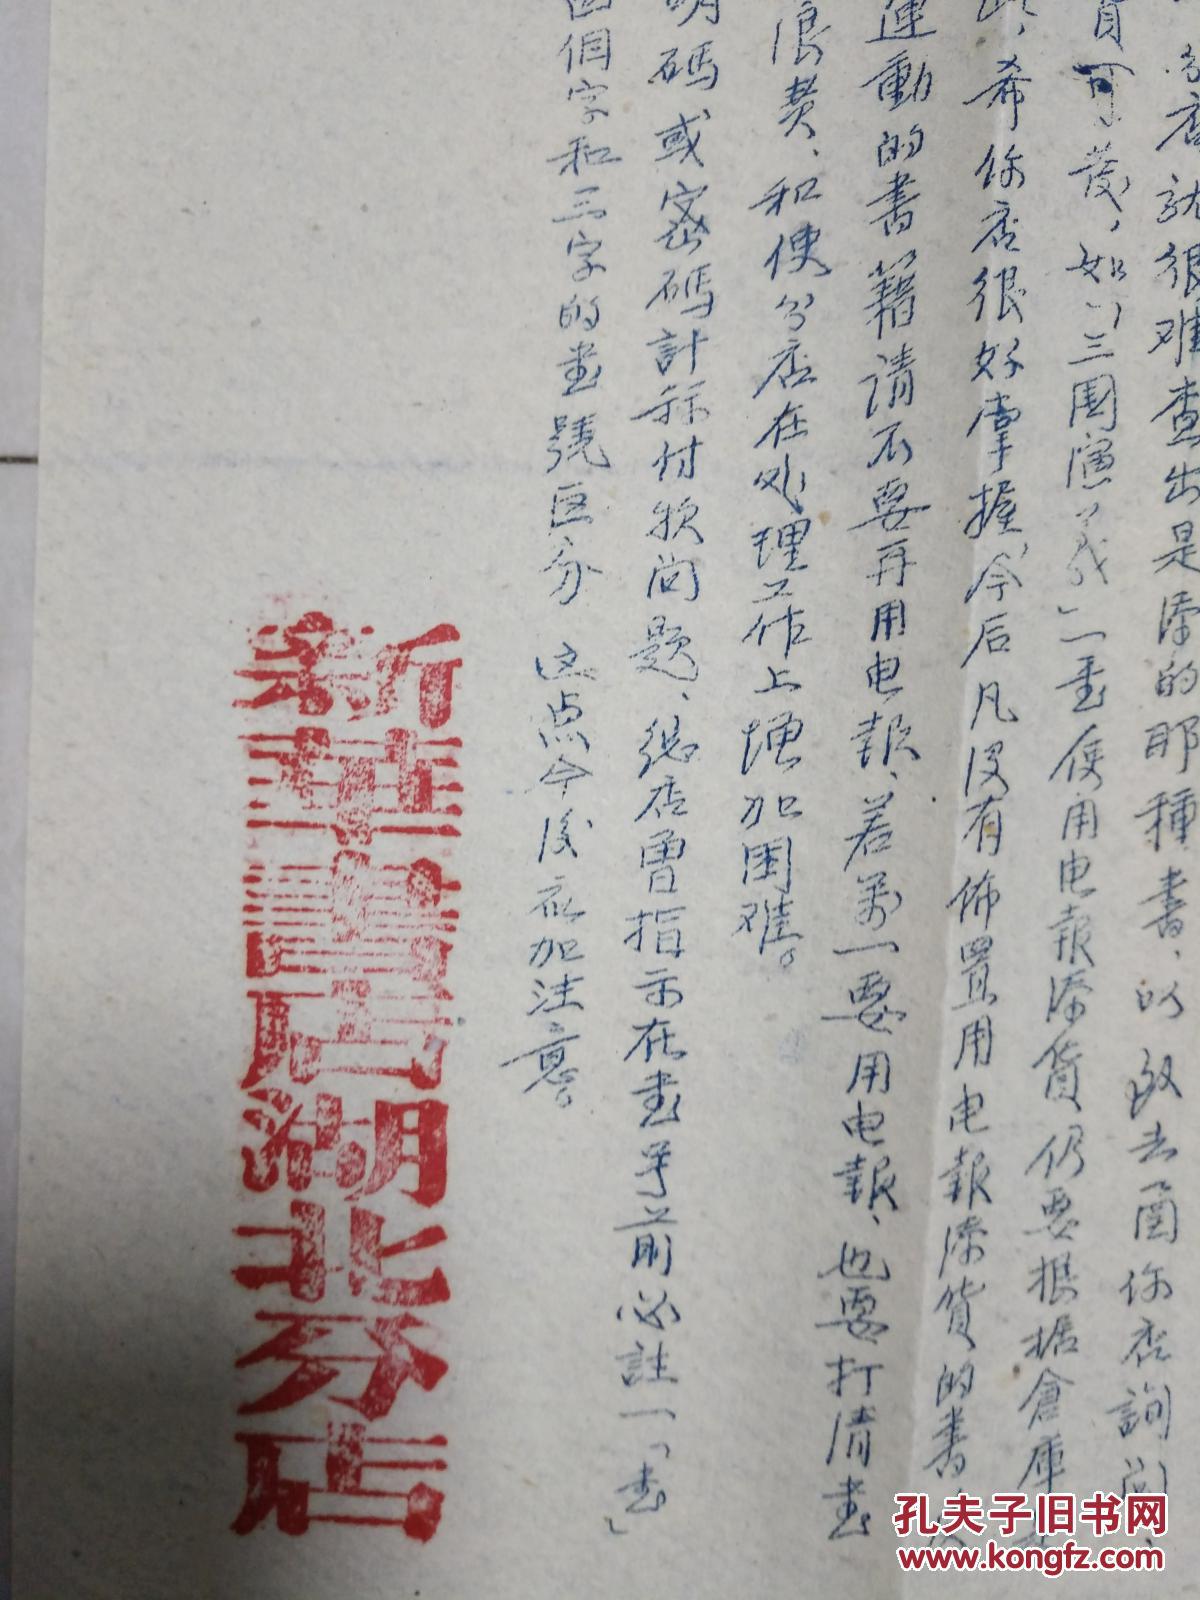 分店就很难查出是添的那種書，以致去函你店詢问、
貨可发，如「三国演义」一书使用电報添貨仍要根据倉庫
，希你店很好掌握，今后凡没有佈置用电報添貨的書
運動的書籍请不要再用电報、若万一要用电報、也要打清书
浪费、和使分店在处理工作上增加困难。
明碼或密碼計祘付款问题、総店曾指示在书号前必註一「书」
四個字和三字的书號区分 这点今後应加注意。
新華書店湖北分店
孔夫子旧书网
www.kongfz.com